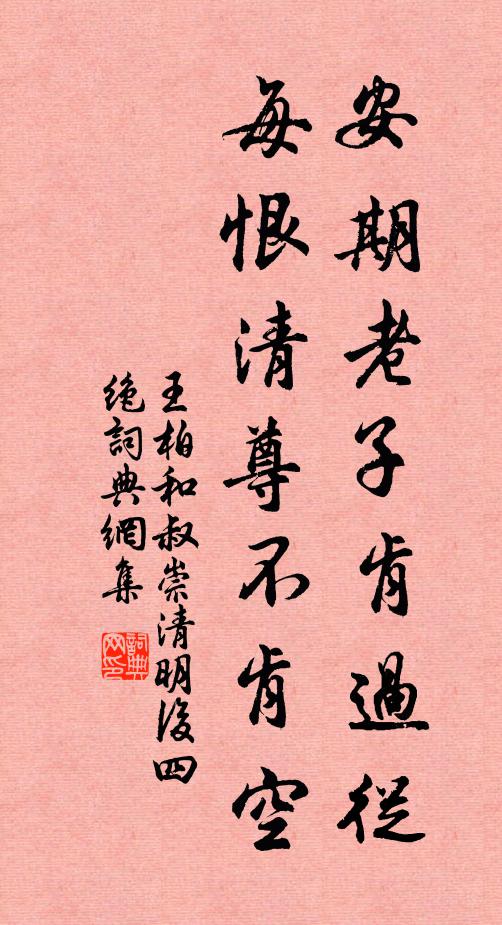 安期老子肯過從
每恨清尊不肯空
王柏和叔崇清明後四
絕詞典網集
詞典网印